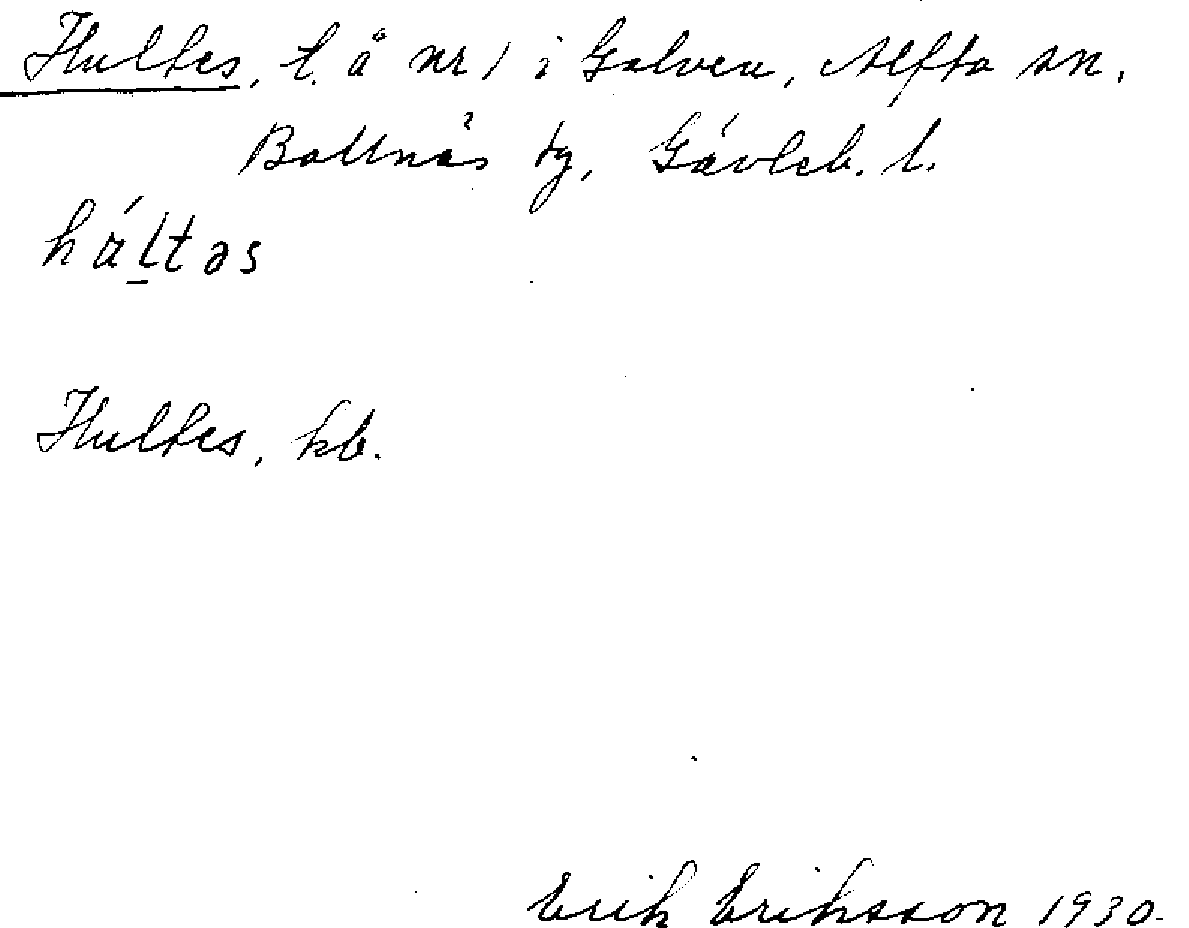 Hultes, l. å nr 1 i Galven, Alfta sn.
Bollnäs tg, Gävleb. l.
háltəs
Hultes, kb.
Erik Eriksson 1930.